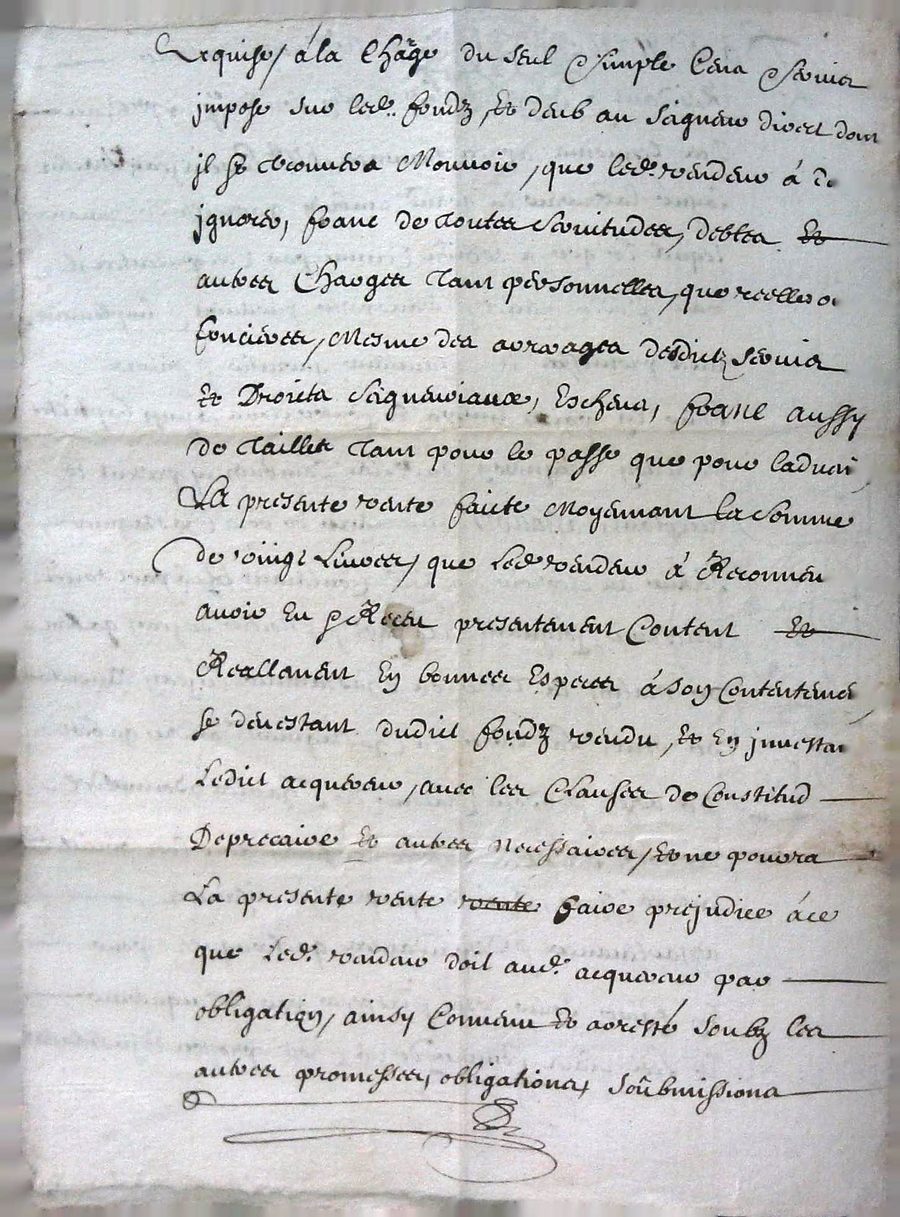 requise, à la Charge du seul Simple Cens Servis
impose sur led. fondz, et deub au seigneur direct dont
il se trouvera Mouvoir, que led. vendeur à dt
ignorer, franc de toutes servitudes, debtes et
autres Charges tant personnelles, que reelles ou
foncieres, mesme des arreages desdictz servis
et Droicts seigneuriaux, escheus, franc aussy
de tailles tant pour le passé que pour ladveni
La presente vente faicte moyennant la somme
de vingt Livres, que led. vendeur à Reconneu
avoir Eu et Receu presentement Content et
Reallement En bonnes Especes à son Contenteme
se devestant dudict fondz vendu, et En investan
Ledict acquereur, avec les Clauses de Constitud
De precaire et autres necessaires, et ne pourra
La presente vente vente faire prejudice à ce
que led. vendeur doit aud. acquereur par
obligation, ainsy Convenu et arresté soubz les
autres promesses, obligations, soubmissions